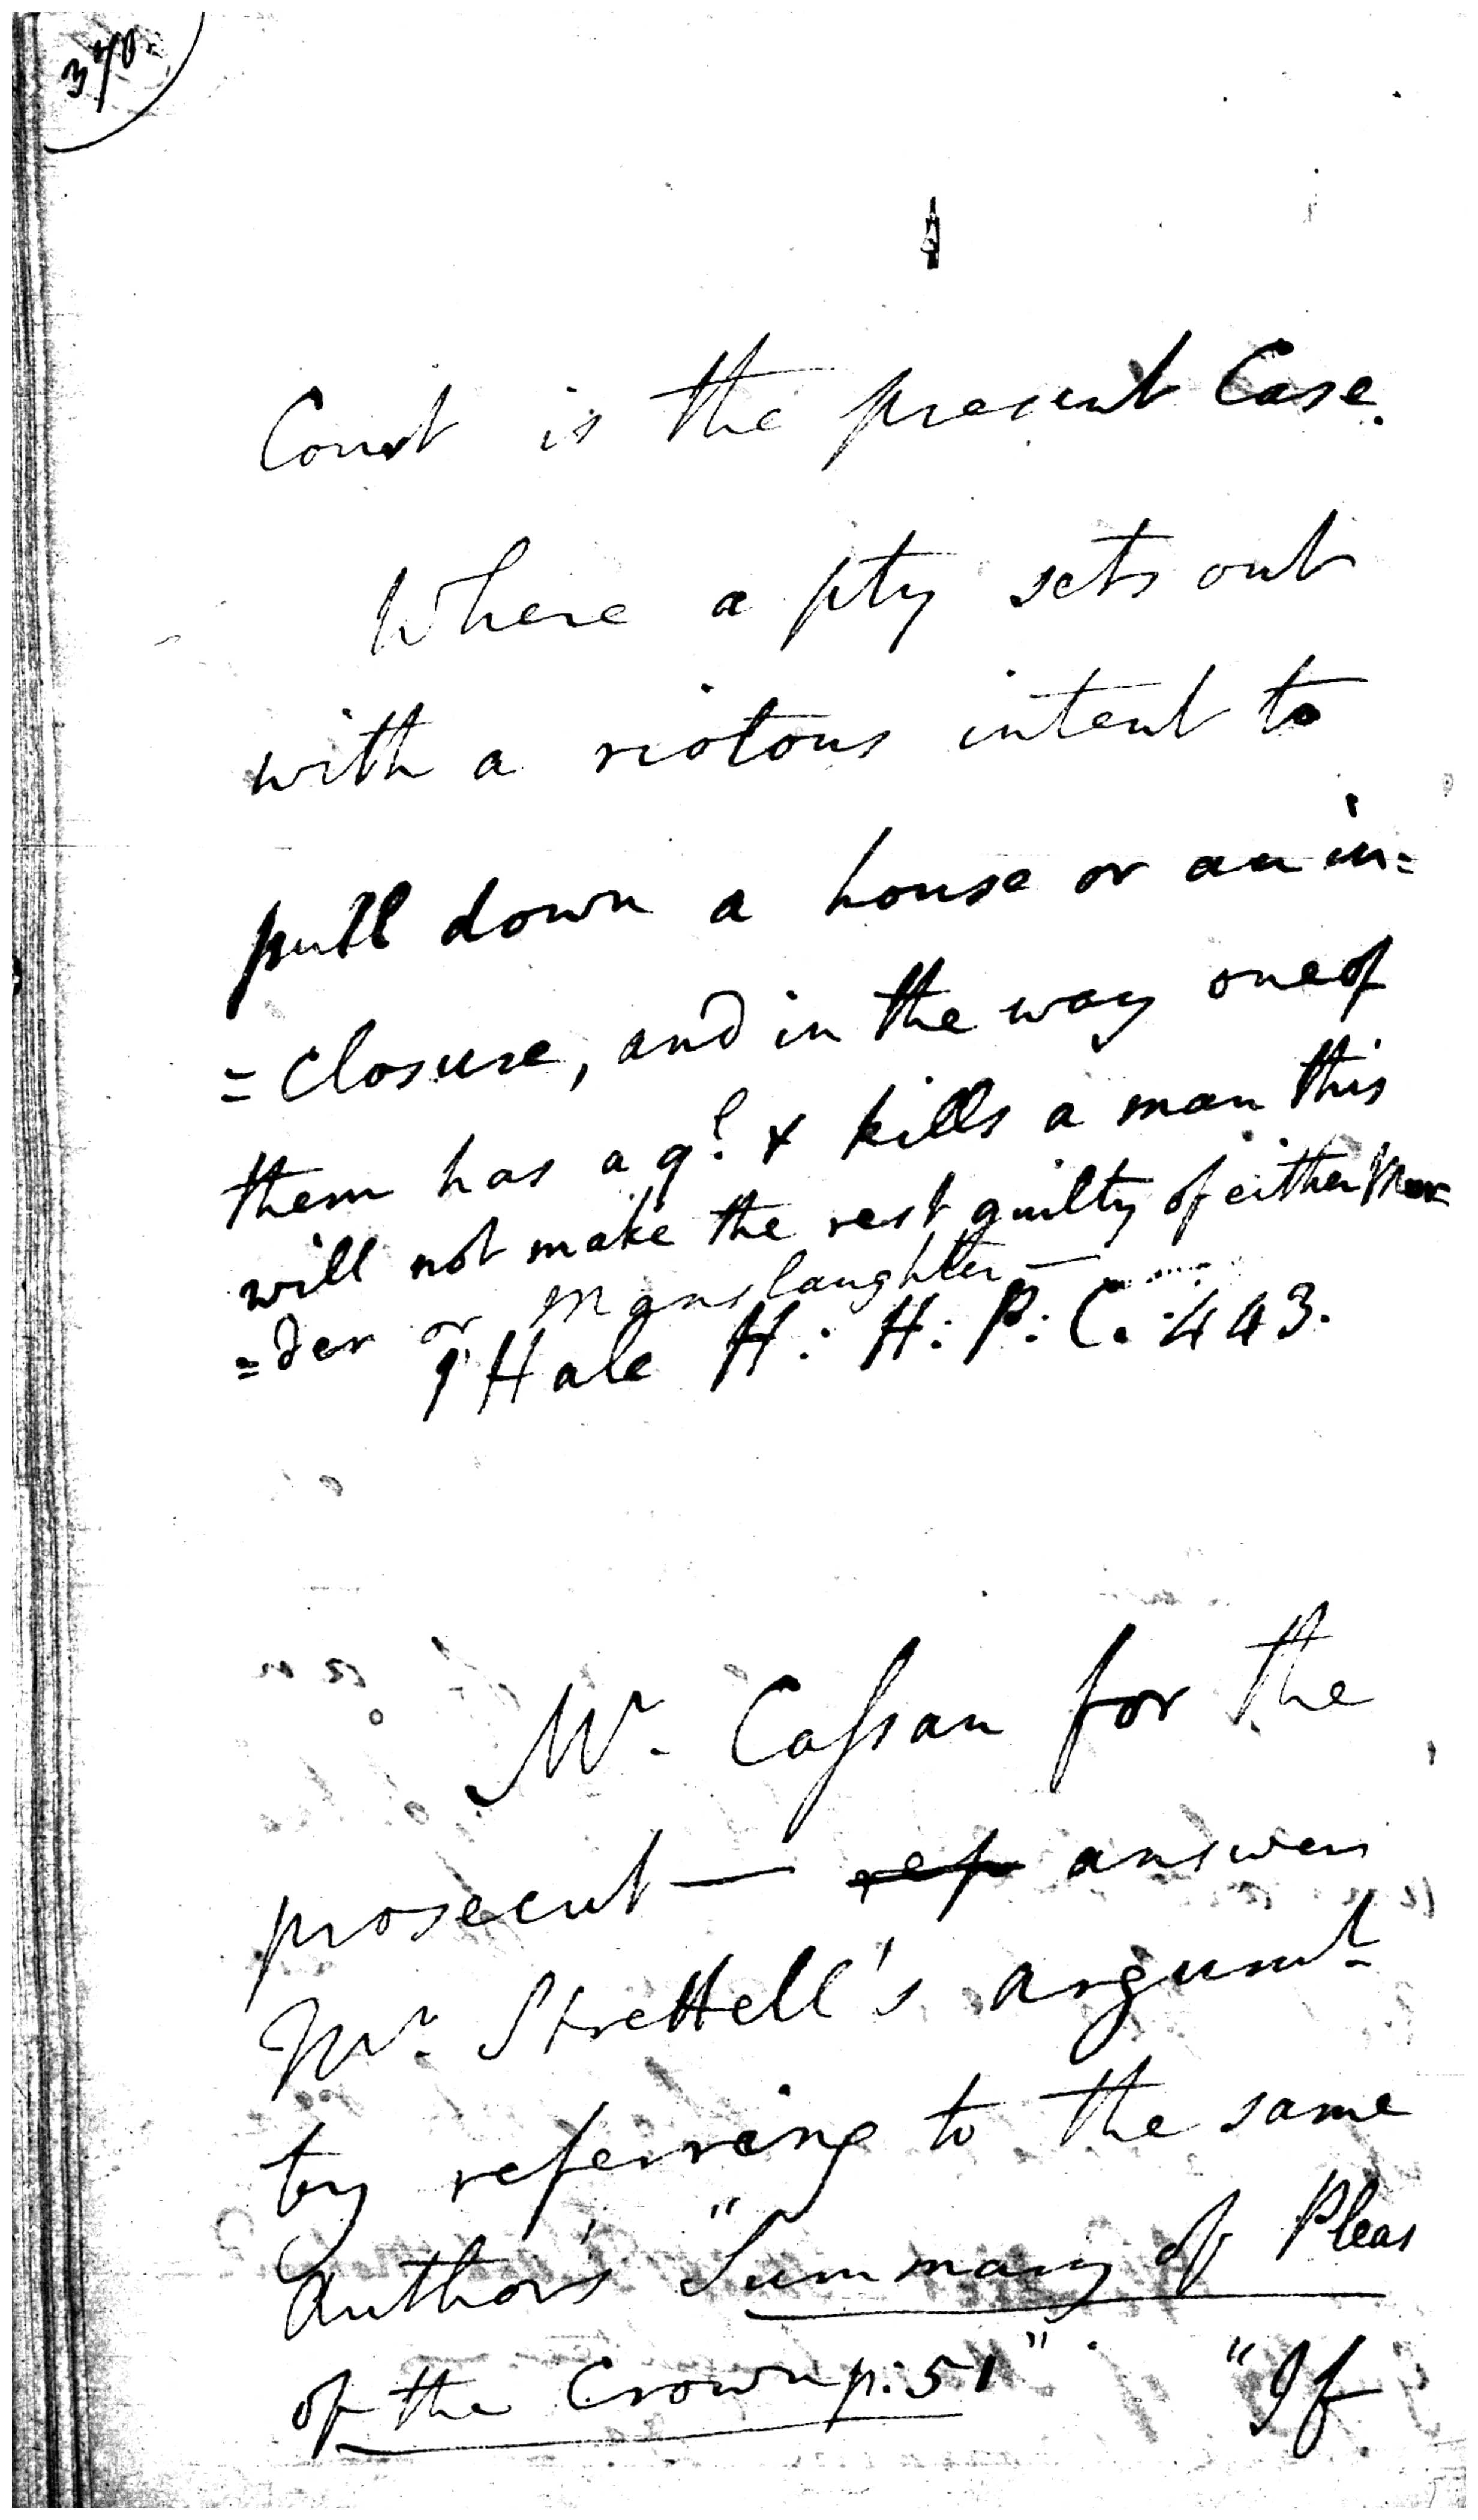 370.
Court is the present Case.
Where a pty sets out
with a riotous intent to
pull down a house or an in=
=closure, and in the way one of
them has a q.l & kills a man this
will not make the rest guilty of either Mur
=der or Manslaughter —
1 Hale H: H: P: C. 443.
Mr. Cassan for the
prosecut— rep answers
Mr. Strettell's argumt.
by referring to the same
Author's "Summary of Pleas
of the Crown p: 51". "If